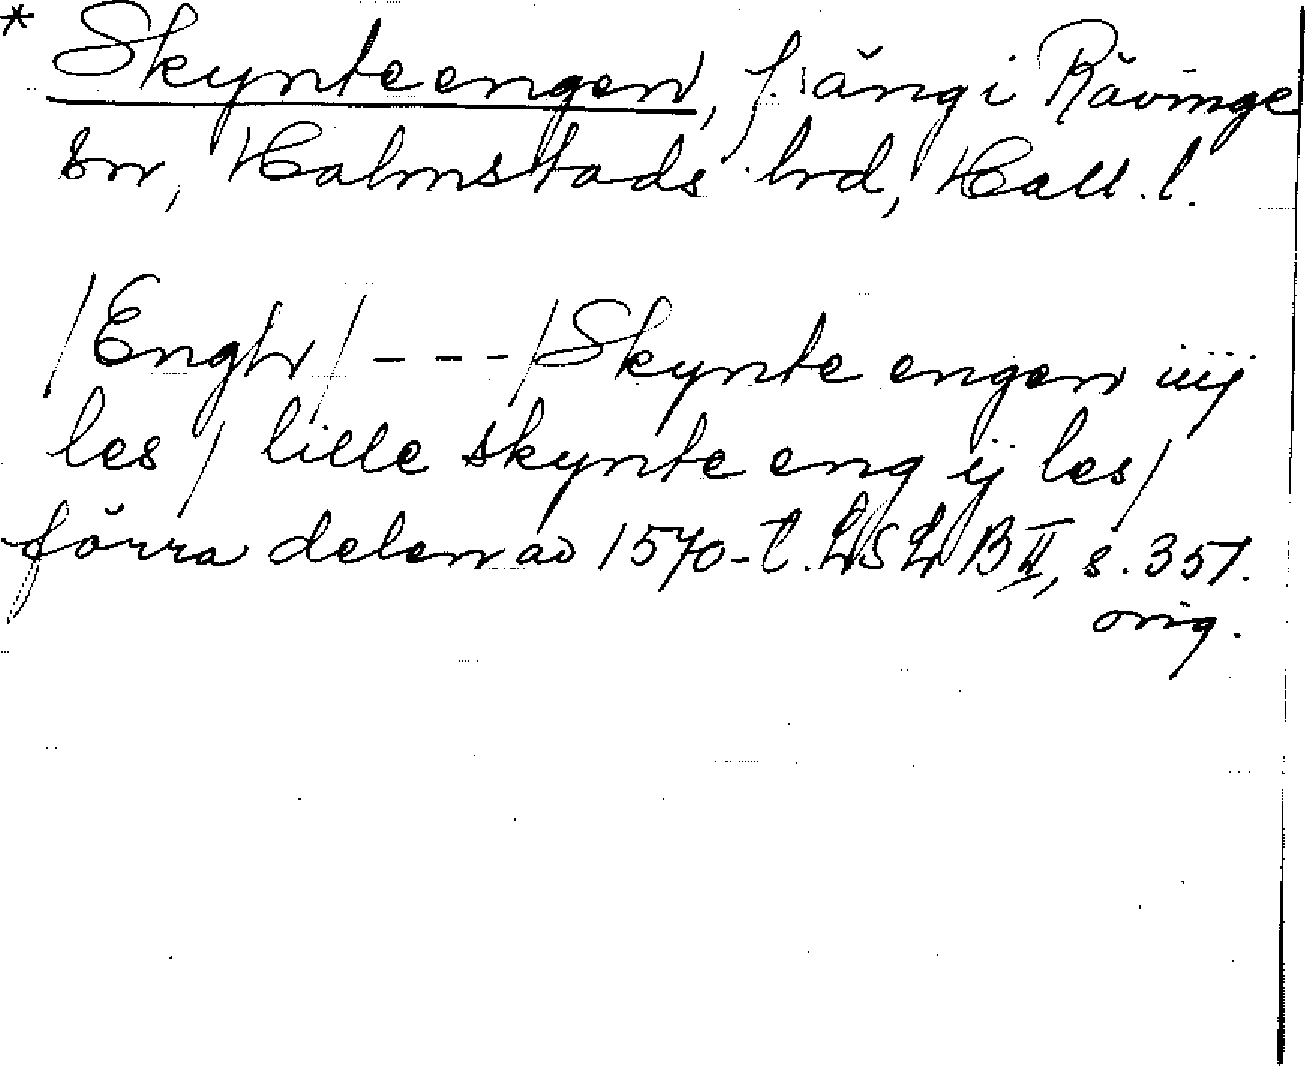 * Skynteengen, f. äng i Rävinge
sn, Halmstads hrd, Hall. l.
/Engh/ --- /Skynte engen iiij
les / lille skynte eng ij les/
förra delen av 1570-t. LSL B II, s. 357.
orig.